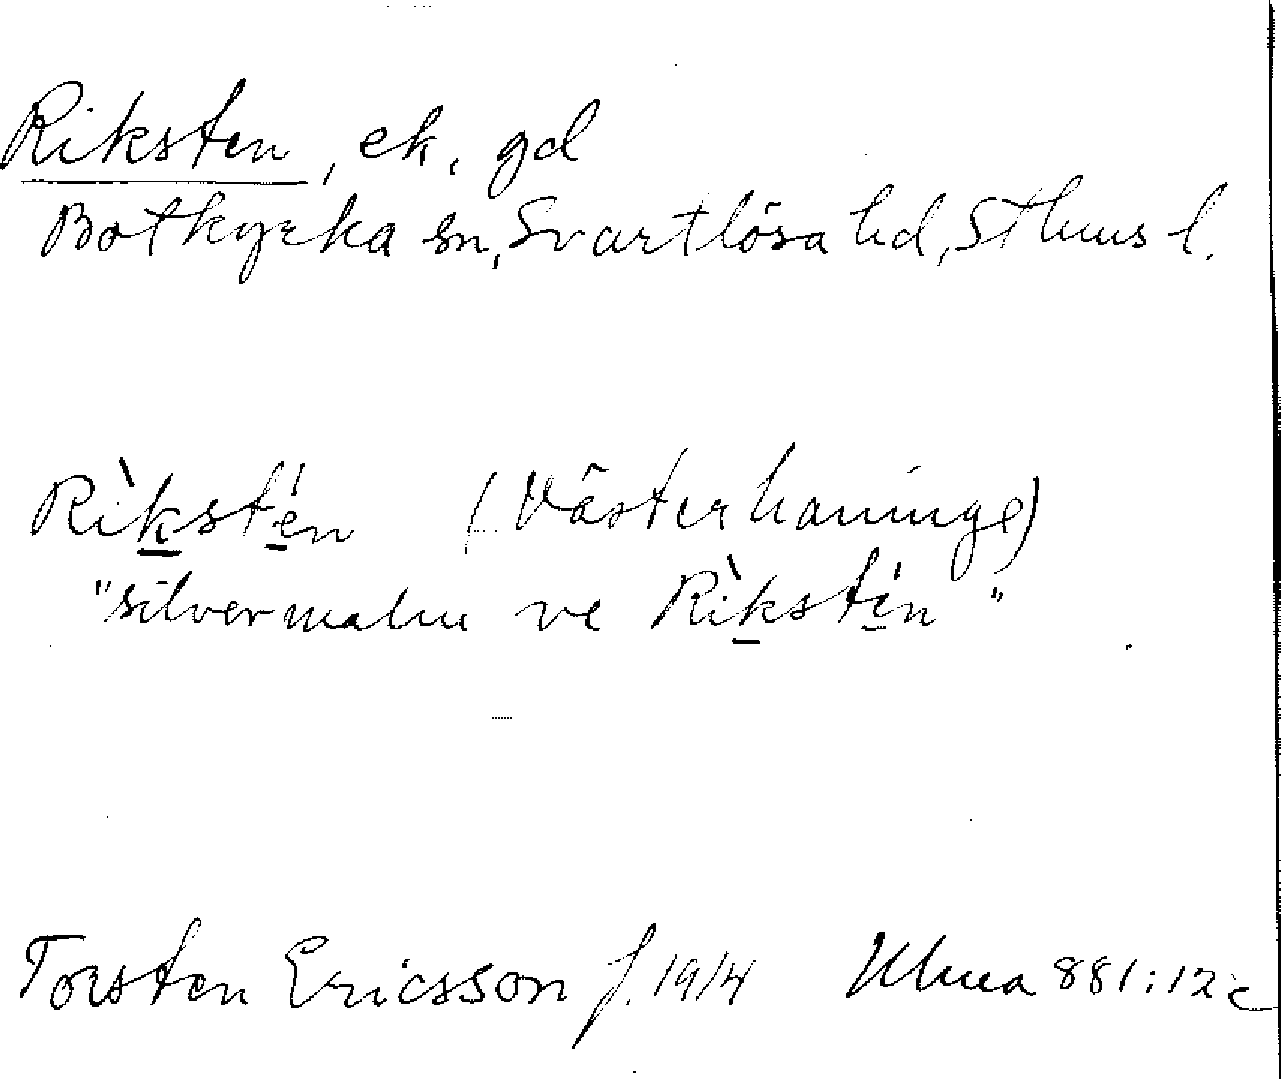 Riksten, ek, gd
Botkyrka sn, Svartlösa hd, Sthms l.
Rìkstén (Västerhaninge)
"silvermalm ve Rìkstén"
Torsten Ericsson f. 1914 Uluma 881:12c